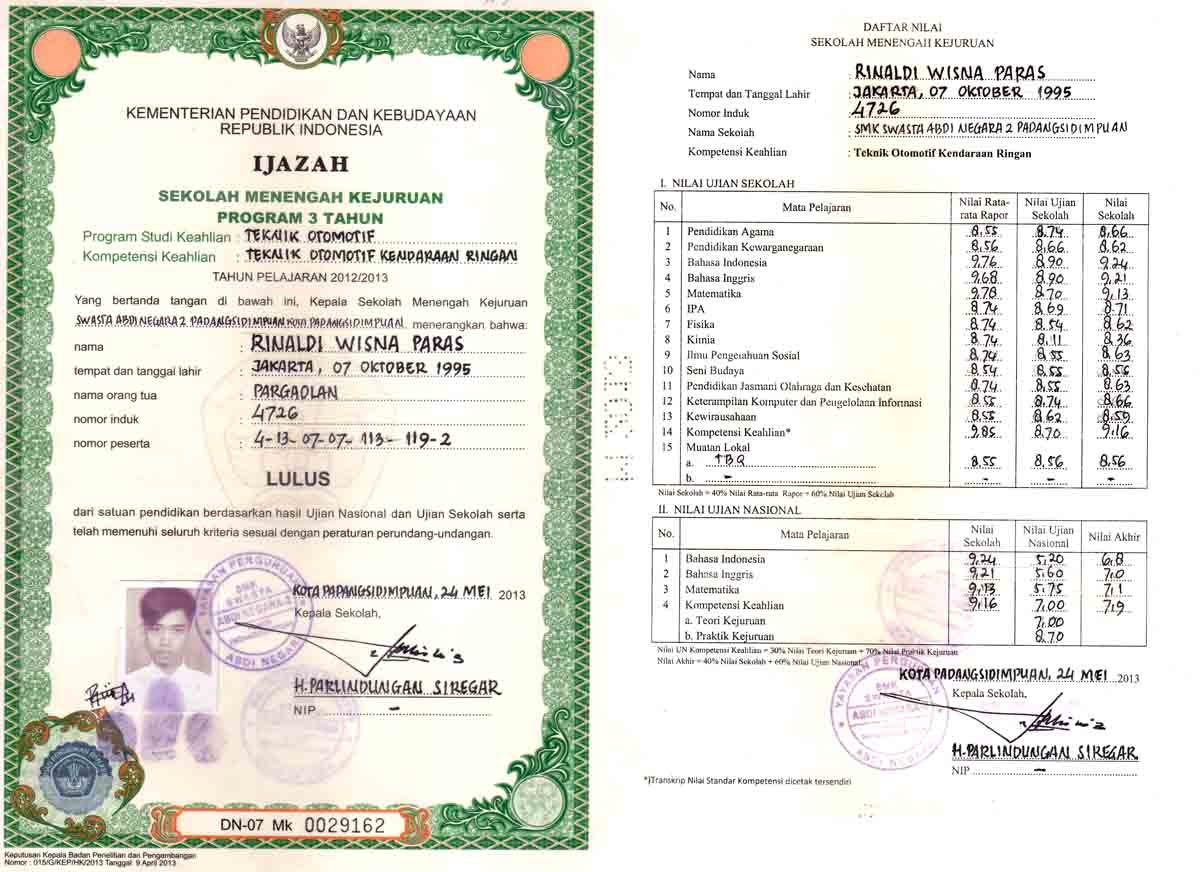 KEMENTERIAN PENDIDIKAN DAN KEBUDAYAAN
REPUBLIK INDONESIA
IJAZAH
SEKOLAH MENENGAH KEJURUAN
PROGRAM 3 TAHUN
Program Studi Keahlian : TEKNIK OTOMOTIF
Kompetensi Keahlian : TEKNIK OTOMOTIF KENDARAAN RINGAN
TAHUN PELAJARAN 2012/2013
Yang bertanda tangan di bawah ini, Kepala Sekolah Menengah Kejuruan
SWASTA ABDI NEGARA 2 PADANGSIDIMPUAN KOTA PADANGSIDIMPUAN menerangkan bahwa:
nama : RINALDI WISNA PARAS
tempat dan tanggal lahir : JAKARTA, 07 OKTOBER 1995
nama orang tua : PARGAOLAN
nomor induk : 4726
nomor peserta : 4-13-07-07-113-119-2
LULUS
dari satuan pendidikan berdasarkan hasil Ujian Nasional dan Ujian Sekolah serta
telah memenuhi seluruh kriteria sesuai dengan peraturan perundang-undangan.
KOTA PADANGSIDIMPUAN, 24 MEI 2013
Kepala Sekolah,
H. PARLINDUNGAN SIREGAR
NIP -
YAYASAN PERGURUAN
SMK
SWASTA
ABDI NEGARA
ABDI NEGARA
DN-07 Mk 0029162
Keputusan Kepala Badan Penelitian dan Pengembangan
Nomor : 015/G/KEP/HK/2013 Tanggal 9 April 2013
DAFTAR NILAI
SEKOLAH MENENGAH KEJURUAN
Nama : RINALDI WISNA PARAS
Tempat dan Tanggal Lahir : JAKARTA, 07 OKTOBER 1995
Nomor Induk : 4726
Nama Sekolah : SMK SWASTA ABDI NEGARA 2 PADANGSIDIMPUAN
Kompetensi Keahlian : Teknik Otomotif Kendaraan Ringan
I. NILAI UJIAN SEKOLAH
No. Mata Pelajaran Nilai Rata-rata Rapor Nilai Ujian Sekolah Nilai Sekolah
1 Pendidikan Agama 8,55 8,74 8,66
2 Pendidikan Kewarganegaraan 8,56 8,66 8,62
3 Bahasa Indonesia 9,76 8,90 9,24
4 Bahasa Inggris 9,68 8,90 9,21
5 Matematika 9,78 8,70 9,13
6 IPA 8,74 8,69 8,71
7 Fisika 8,74 8,54 8,62
8 Kimia 8,74 8,11 8,36
9 Ilmu Pengetahuan Sosial 8,74 8,55 8,63
10 Seni Budaya 8,54 8,55 8,55
11 Pendidikan Jasmani Olahraga dan Kesehatan 8,74 8,55 8,63
12 Keterampilan Komputer dan Pengelolaan Informasi 8,55 8,74 8,66
13 Kewirausahaan 8,55 8,62 8,59
14 Kompetensi Keahlian* 9,85 8,70 9,16
15 Muatan Lokal
a. TBQ 8,55 8,56 8,56
b. - - - -
Nilai Sekolah = 40% Nilai Rata-rata Rapor + 60% Nilai Ujian Sekolah
II. NILAI UJIAN NASIONAL
No. Mata Pelajaran Nilai Sekolah Nilai Ujian Nasional Nilai Akhir
1 Bahasa Indonesia 9,24 5,20 6,8
2 Bahasa Inggris 9,21 5,60 7,0
3 Matematika 9,13 5,75 7,1
4 Kompetensi Keahlian 9,16 7,00 7,9
a. Teori Kejuruan 7,00
b. Praktik Kejuruan 8,70
Nilai UN Kompetensi Keahlian = 30% Nilai Teori Kejuruan + 70% Nilai Praktik Kejuruan
Nilai Akhir = 40% Nilai Sekolah + 60% Nilai Ujian Nasional
KOTA PADANGSIDIMPUAN, 24 MEI 2013
Kepala Sekolah,
H. PARLINDUNGAN SIREGAR
NIP -
YAYASAN PERGURUAN
SMK
SWASTA
ABDI NEGARA
ABDI NEGARA
*)Transkrip Nilai Standar Kompetensi dicetak tersendiri